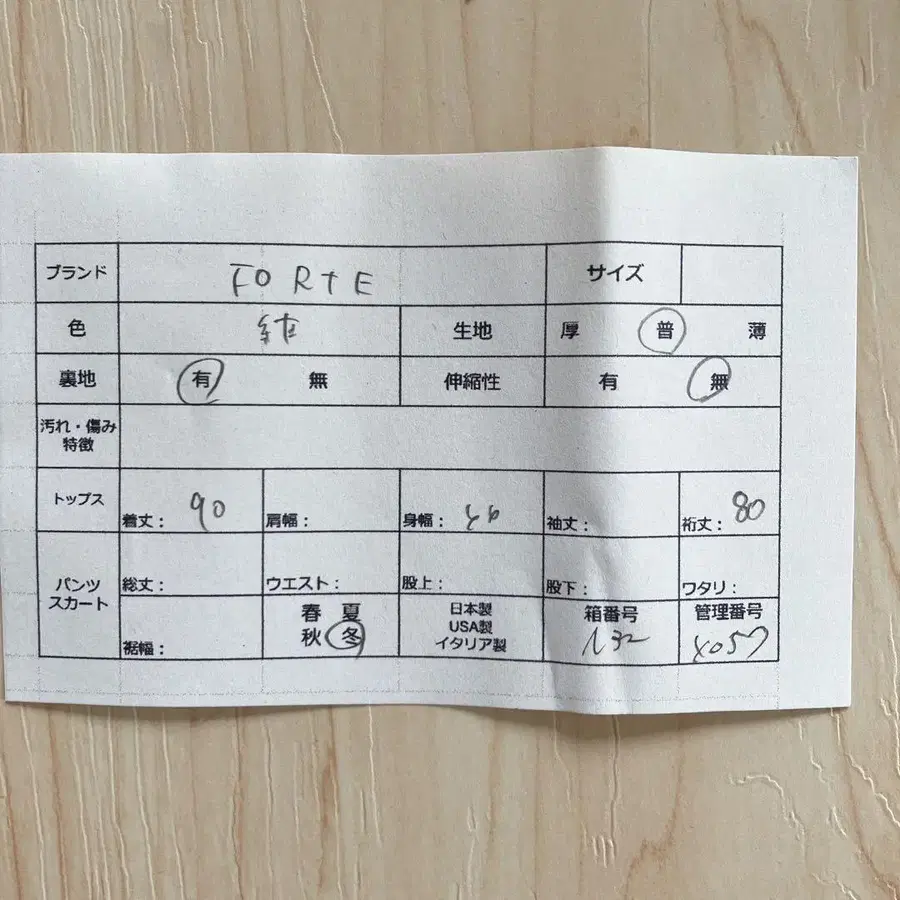 ブランド FORTE サイズ
色 紺 生地 厚 普 薄
裏地 有 無 伸縮性 有 無
汚れ・傷み
特徴
トップス 着丈: 90 肩幅: 身幅: 袖丈: 裄丈: 80
パンツ
スカート
総丈: ウエスト: 股上: 股下: ワタリ:
裾幅:
春 夏
秋 冬
日本製
USA製
イタリア製
箱番号
管理番号